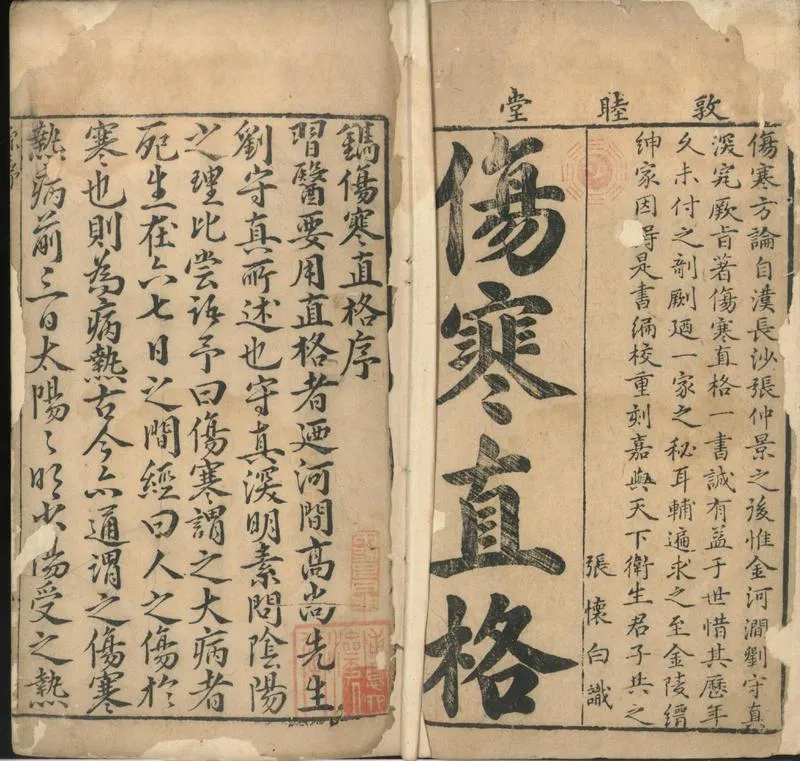 敦睦堂
傷寒方論自漢長沙張仲景之後惟金河澗劉守真
深究厥旨著傷寒直格一書誠有益于世惜其歷年
久未付之剞劂廼一家之秘耳輔遍求之至金陵縉
紳家因得是書編校重刻嘉與天下衛生君子共之
張懷白識
傷寒直格
鐫傷寒直格序
習醫要用直格者廼河間高尚先生
劉守真所述也守真深明素問陰陽
之理比嘗語予曰傷寒謂之大病者
死生在六七日之間經曰人之傷於
寒也則為病熱古今亦通謂之傷寒
熱病前三日太陽〻明少陽受之熱